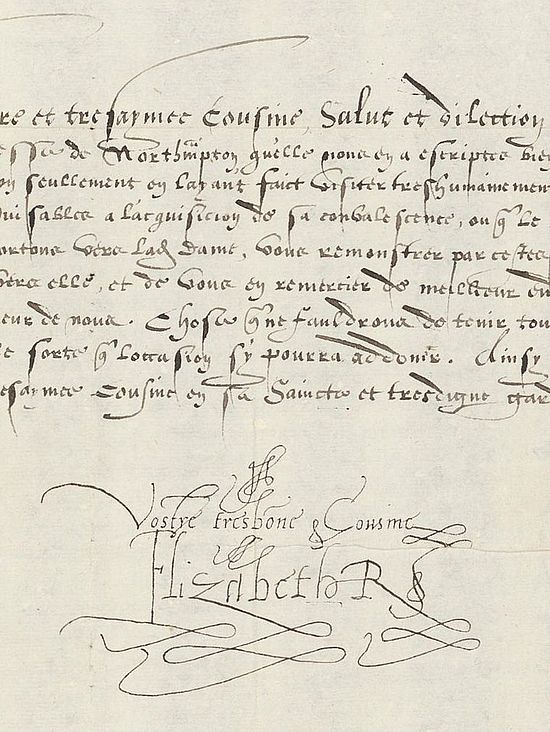 re et tresaymee Cousine, Salut et dilection
esse de Northmpton qu'elle nous en a escriptes bien
on seullement en layant faict visiter treshumainemen
sables a l'acquisicion de sa convalescence, ou q̄ le
ortons vers lad dame, vous remonstrer par cestes
vers elle, et de vous en remercier de meilleur
eur de nous. Chose q̄ ne fauldrons de tenir tou
sorte q̄ loccasion sy pourra addonner. Ainsy
esaymee Cousine en sa Saincte et tresdigne gard
Vostre tresbone Cousine
Elizabeth R